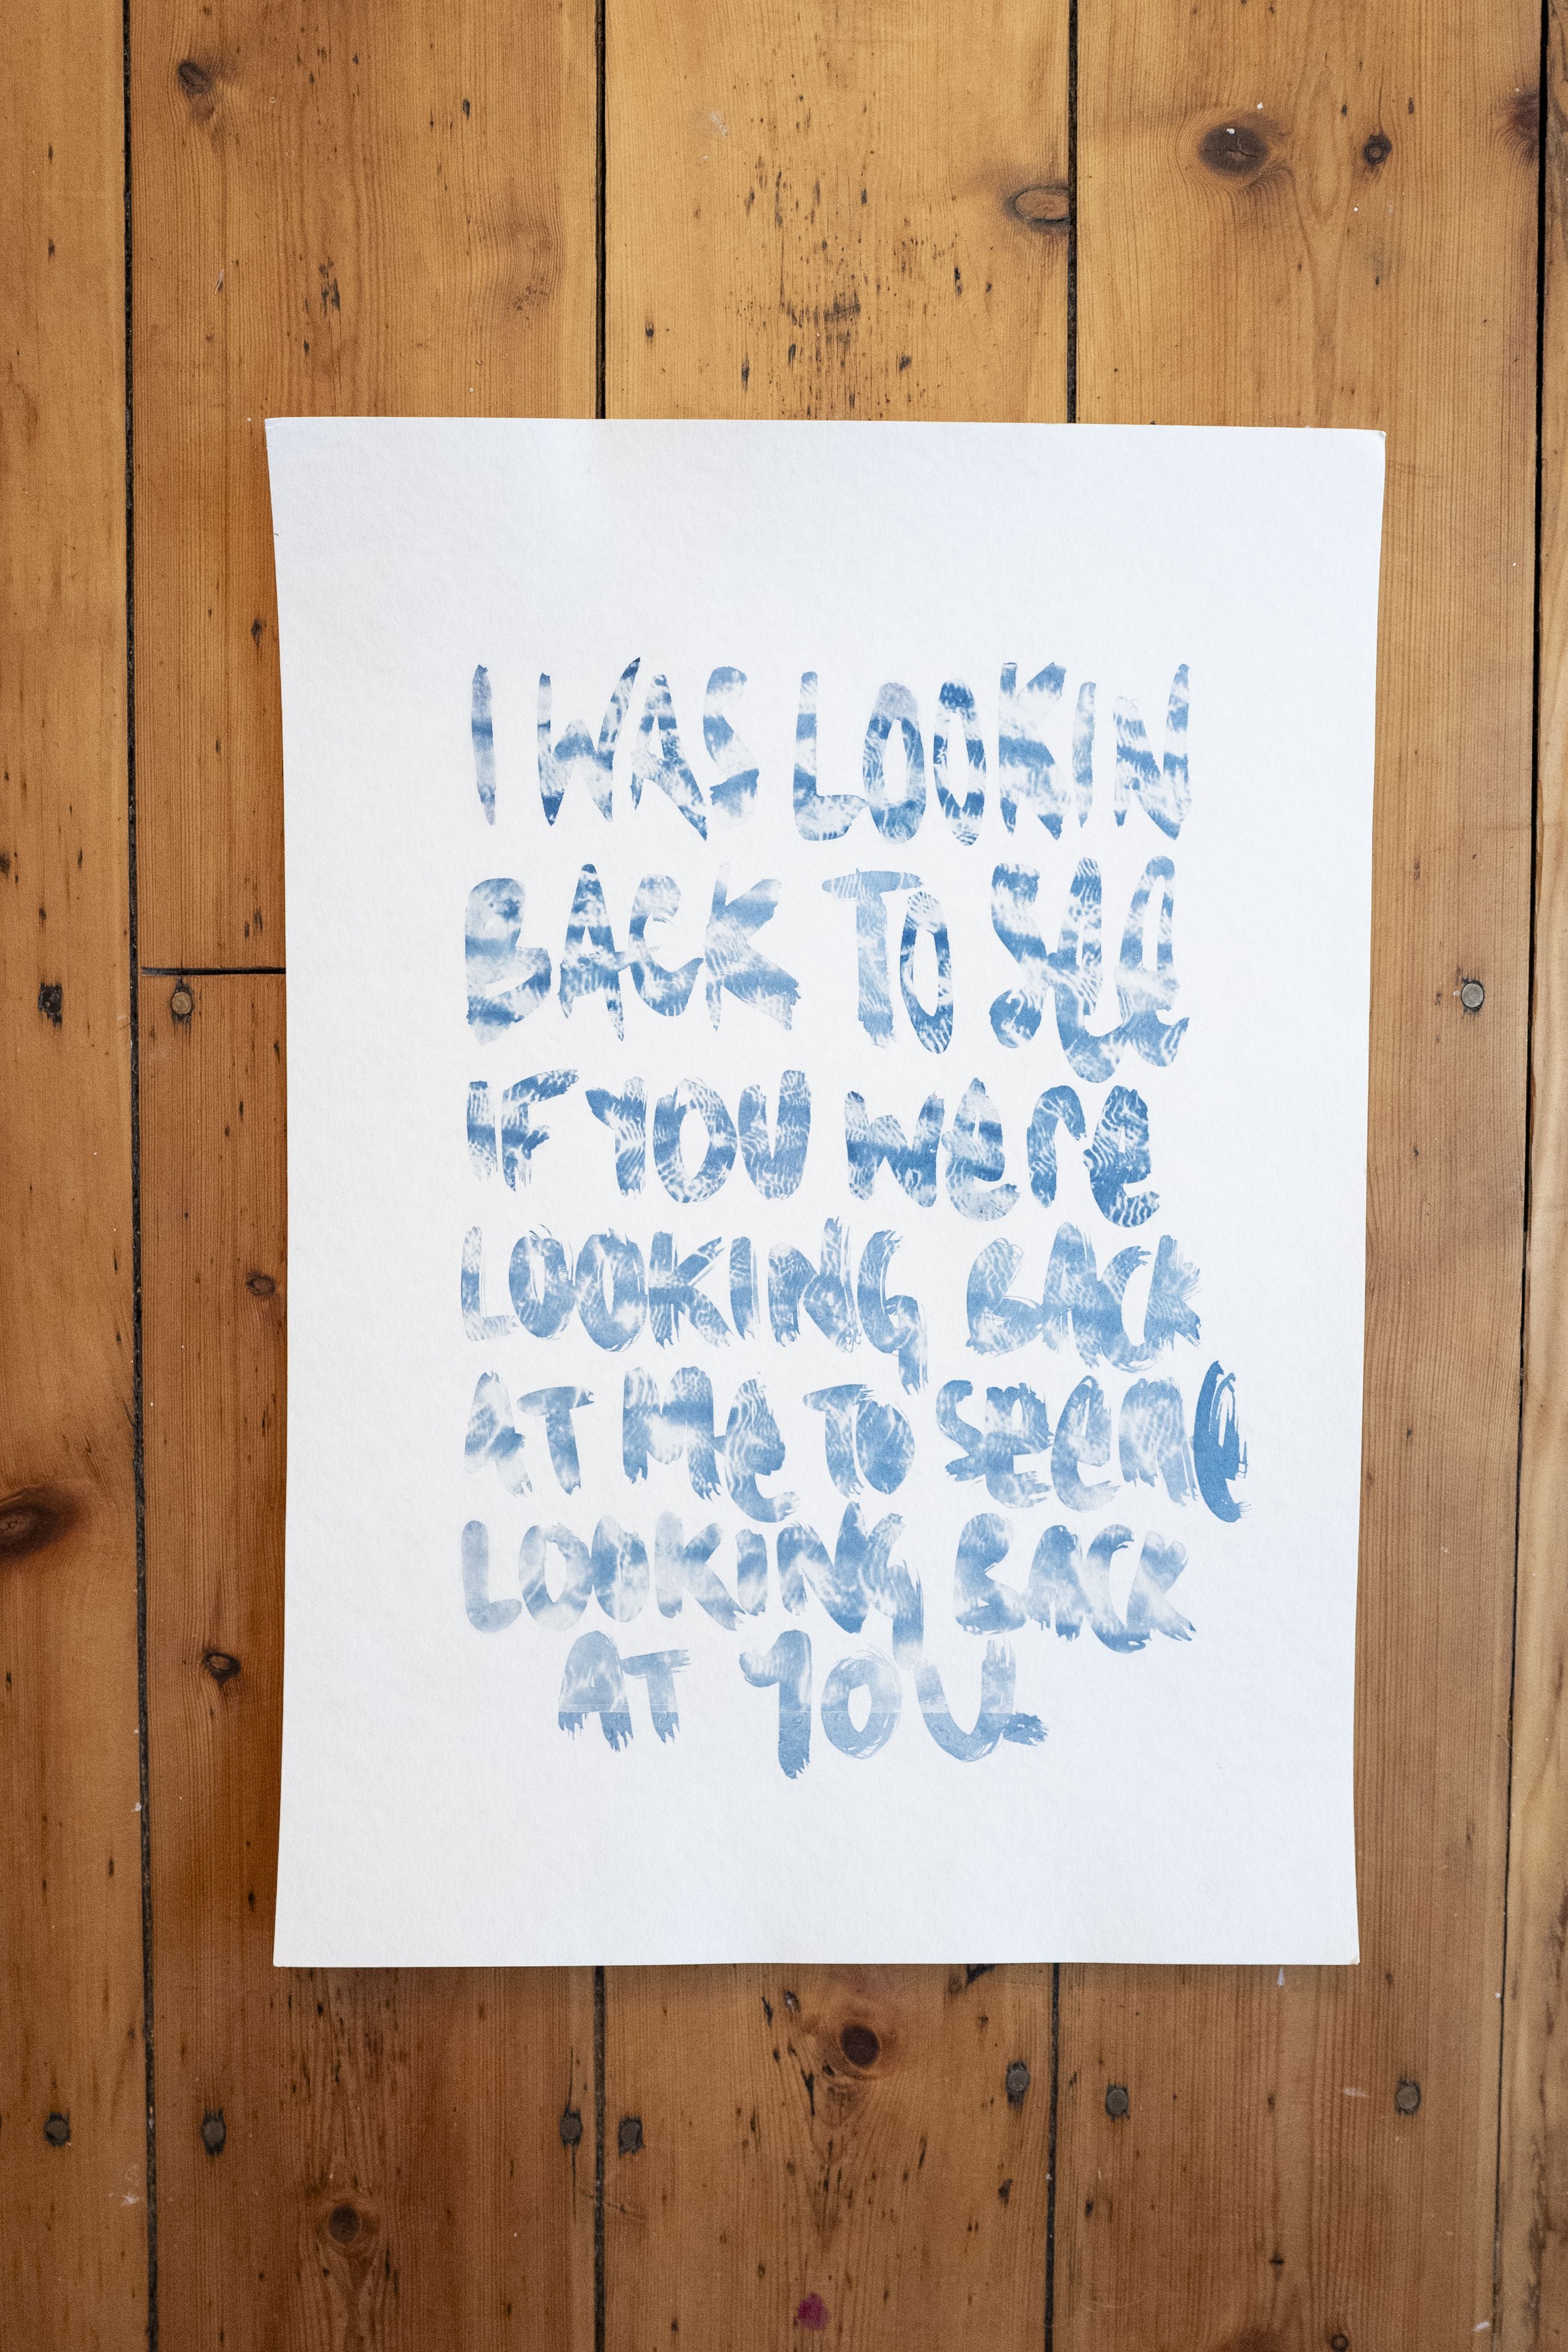 I WAS LOOKIN
BACK TO See
IF YOU were
LOOKING BACK
AT Me TO SeeMe
LOOKING BACK
AT YOU